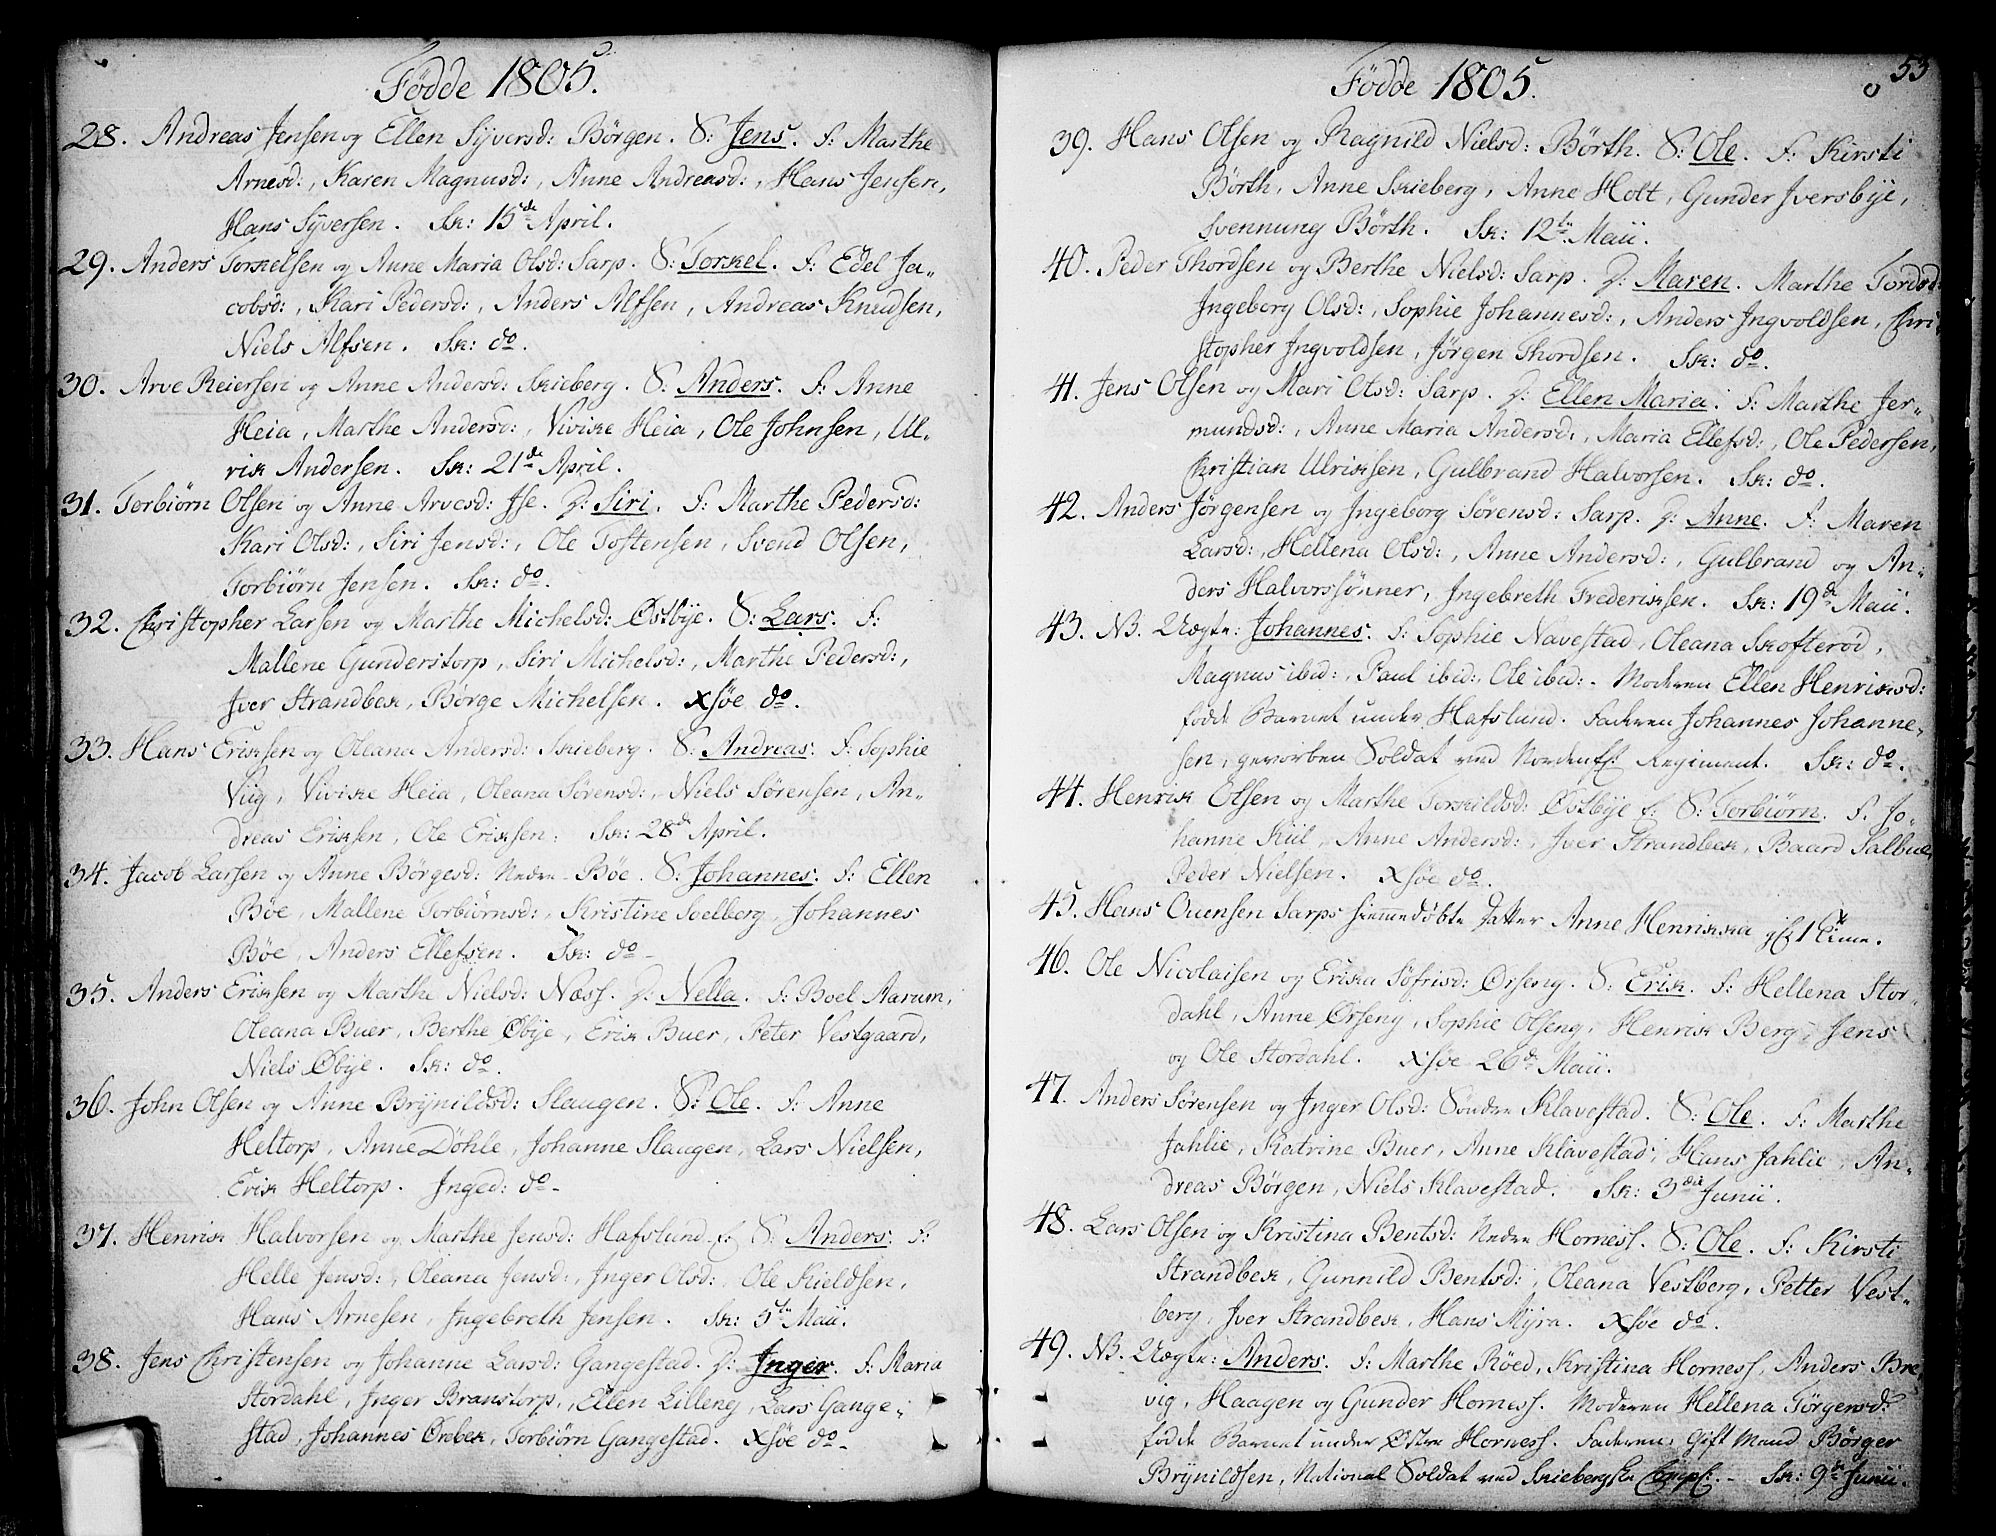 Födde 1805.
28. Andreas Jensen og Ellen Syversd: Börgen. S: Jens. F: Marthe
Arnesd:, Karen Magnusd:, Anne Andreasd:, Hans Jensen,
Hans Syversen. Sk: 15de April.
29. Anders Torkelsen og Anne Maria Olsd: Sarp. S: Torkel. F: Edel Ja-
cobsd:, Kari Pedersd:, Anders Alfsen, Andreas Knudsen,
Niels Alfsen. Sk: do.
30. Arve Reiersen og Anne Andersd: Skieberg. S: Anders. F: Anne
Heia, Marthe Andersd:, Vivike Heia, Ole Johnsen, Ul-
rik Andersen. Sk: 21de April.
31. Torbiørn Olsen og Anne Arvesd: Ise. D: Siri. F: Marthe Pedersd:
Kari Olsd:, Siri Jensd:, Ole Tostensen, Svend Olsen,
Torbiørn Jensen. Sk: do.
32. Christopher Larsen og Marthe Michelsd: Østbye. S: Lars. F:
Mallene Gunderstorp, Siri Michelsd:, Marthe Pedersd:,
Iver Strandbek, Børge Michelsen. Xsøe do.
33. Hans Eriksen og Oleana Andersd: Skieberg. S: Andreas. F: Sophie
Viig, Vivike Heia, Oleana Sørensd:, Niels Sørensen, An-
dreas Eriksen, Ole Eriksen. Sk: 28de April.
34. Jacob Larsen og Anne Børgesd: Nedre Bøe. S: Johannes. F: Ellen
Bøe, Mallene Torbiørnsd:, Kristine Soelberg, Johannes
Bøe, Anders Ellefsen. Sk: do
35. Anders Eriksen og Marthe Nielsd: Næss. D: Nella. F: Boel Aarum,
Oleana Buer, Berthe Øbye, Erik Buer, Peter Vestgaard,
Niels Øbye. Sk: do.
36. John Olsen og Anne Brynildsd: Slaugen. S: Ole. F: Anne
Heltorp, Anne Döhle, Johanne Slaugen, Lars Nielsen,
Erik Heltorp. Inged: do
37. Henrik Halvorsen og Marthe Jensd: Hafslund. S: Anders. F:
Helle Jensd:, Oleana Jensd:, Inger Olsd:, Ole Kieldsen,
Hans Arnesen, Ingebreth Jensen. Sk: 5te Maii.
38. Jens Christensen og Johanne Larsd: Gangestad. D: Inger. F: Maria
Stordahl, Inger Branstorp, Ellen Lilleng, Lars Gange-
stad, Johannes Ørebek, Torbiørn Gangestad. Xsøe do
Födde 1805.
53
39. Hans Olsen og Ragnild Nielsd: Börth. S: Ole. F: Kirsti
Börth, Anne Skieberg, Anne Holt, Gunder Iversbye,
Svennung Börth. Sk: 12te Maii.
40. Peder Thordsen og Berthe Nielsd: Sarp. D: Maren. Marthe Tordsd:
Ingeborg Olsd:, Sophie Johannesd:, Anders Ingvoldsen, Chri
stopher Ingvoldsen, Jörgen Thordsen. Sk: do.
41. Jens Olsen og Mari Olsd: Sarp. D: Ellen Maria. F: Marthe Jer-
mundsd:, Anne Maria Andersd:, Maria Ellefsd:, Ole Pedersen,
Christian Ulriksen, Gulbrand Halvorsen. Sk: do.
42. Anders Jørgensen og Ingeborg Sörensd: Sarp. D: Anne. F: Maren
Larsd:, Hellena Olsd:, Anne Andersd:, Gulbrand og An-
ders Halvorssönner, Ingebreth Frederiksen. Sk: 19de Maii.
43. NB. Uægte: Johannes. F: Sophie Navestad, Oleana Skofterød,
Magnus ibid:, Paul ibid:, Ole ibid:. Moderen Ellen Henriksd:
födte Barnet under Hafslund. Faderen Johannes Johanne-
sen, gevorben Soldat ved Nordenfl: Regiment. Sk: do.
44. Henrik Olsen og Marthe Torkildsd: Østbye. S: Torbiørn. F. Jo-
hanne Kiil, Anne Andersd:, Iver Strandbek, Baard Salbue,
Peder Nielsen. Xsøe do.
45. Hans Ouensen Sarps hiemmedöbte Datter Anne Henrikka 1 Time.
46. Ole Nicolaisen og Erika Söfrisd: Ørseng. S: Erik. F: Hellena Stor-
dahl, Anne Ørseng, Sophie Olseng, Henrik Berg, Jens
og Ole Stordahl. Xsøe 26de Maii.
47. Anders Sørensen og Inger Olsd: Söndre Klavestad. S: Ole. F: Marthe
Jahlie, Katrine Buer, Anne Klavestad, Hans Jahlie, An-
dreas Børgen, Niels Klavestad. Sk: 3die Junii.
48. Lars Olsen og Kristina Bentsd: Nedre Horness. S: Ole. F: Kirsti
Strandbek, Gunnild Bentsd:, Oleana Vestberg, Petter Vest-
berg, Iver Strandbek, Hans Myra. Xsøe do.
49. NB. Uægte: Anders. F: Marthe Röed, Kristina Horness, Anders Bre
vig, Haagen og Gunder Horness. Moderen Hellena Törgersd:
födte Barnet under Østre Horness. Faderen: Gift Mand Børger
Brynildsen, National Soldat ved Skiebergske Comp: Sk: 9de Junii.